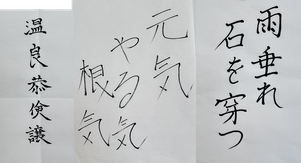 雨垂れ
石を穿つ
元気
やる気
根気
温良恭倹譲